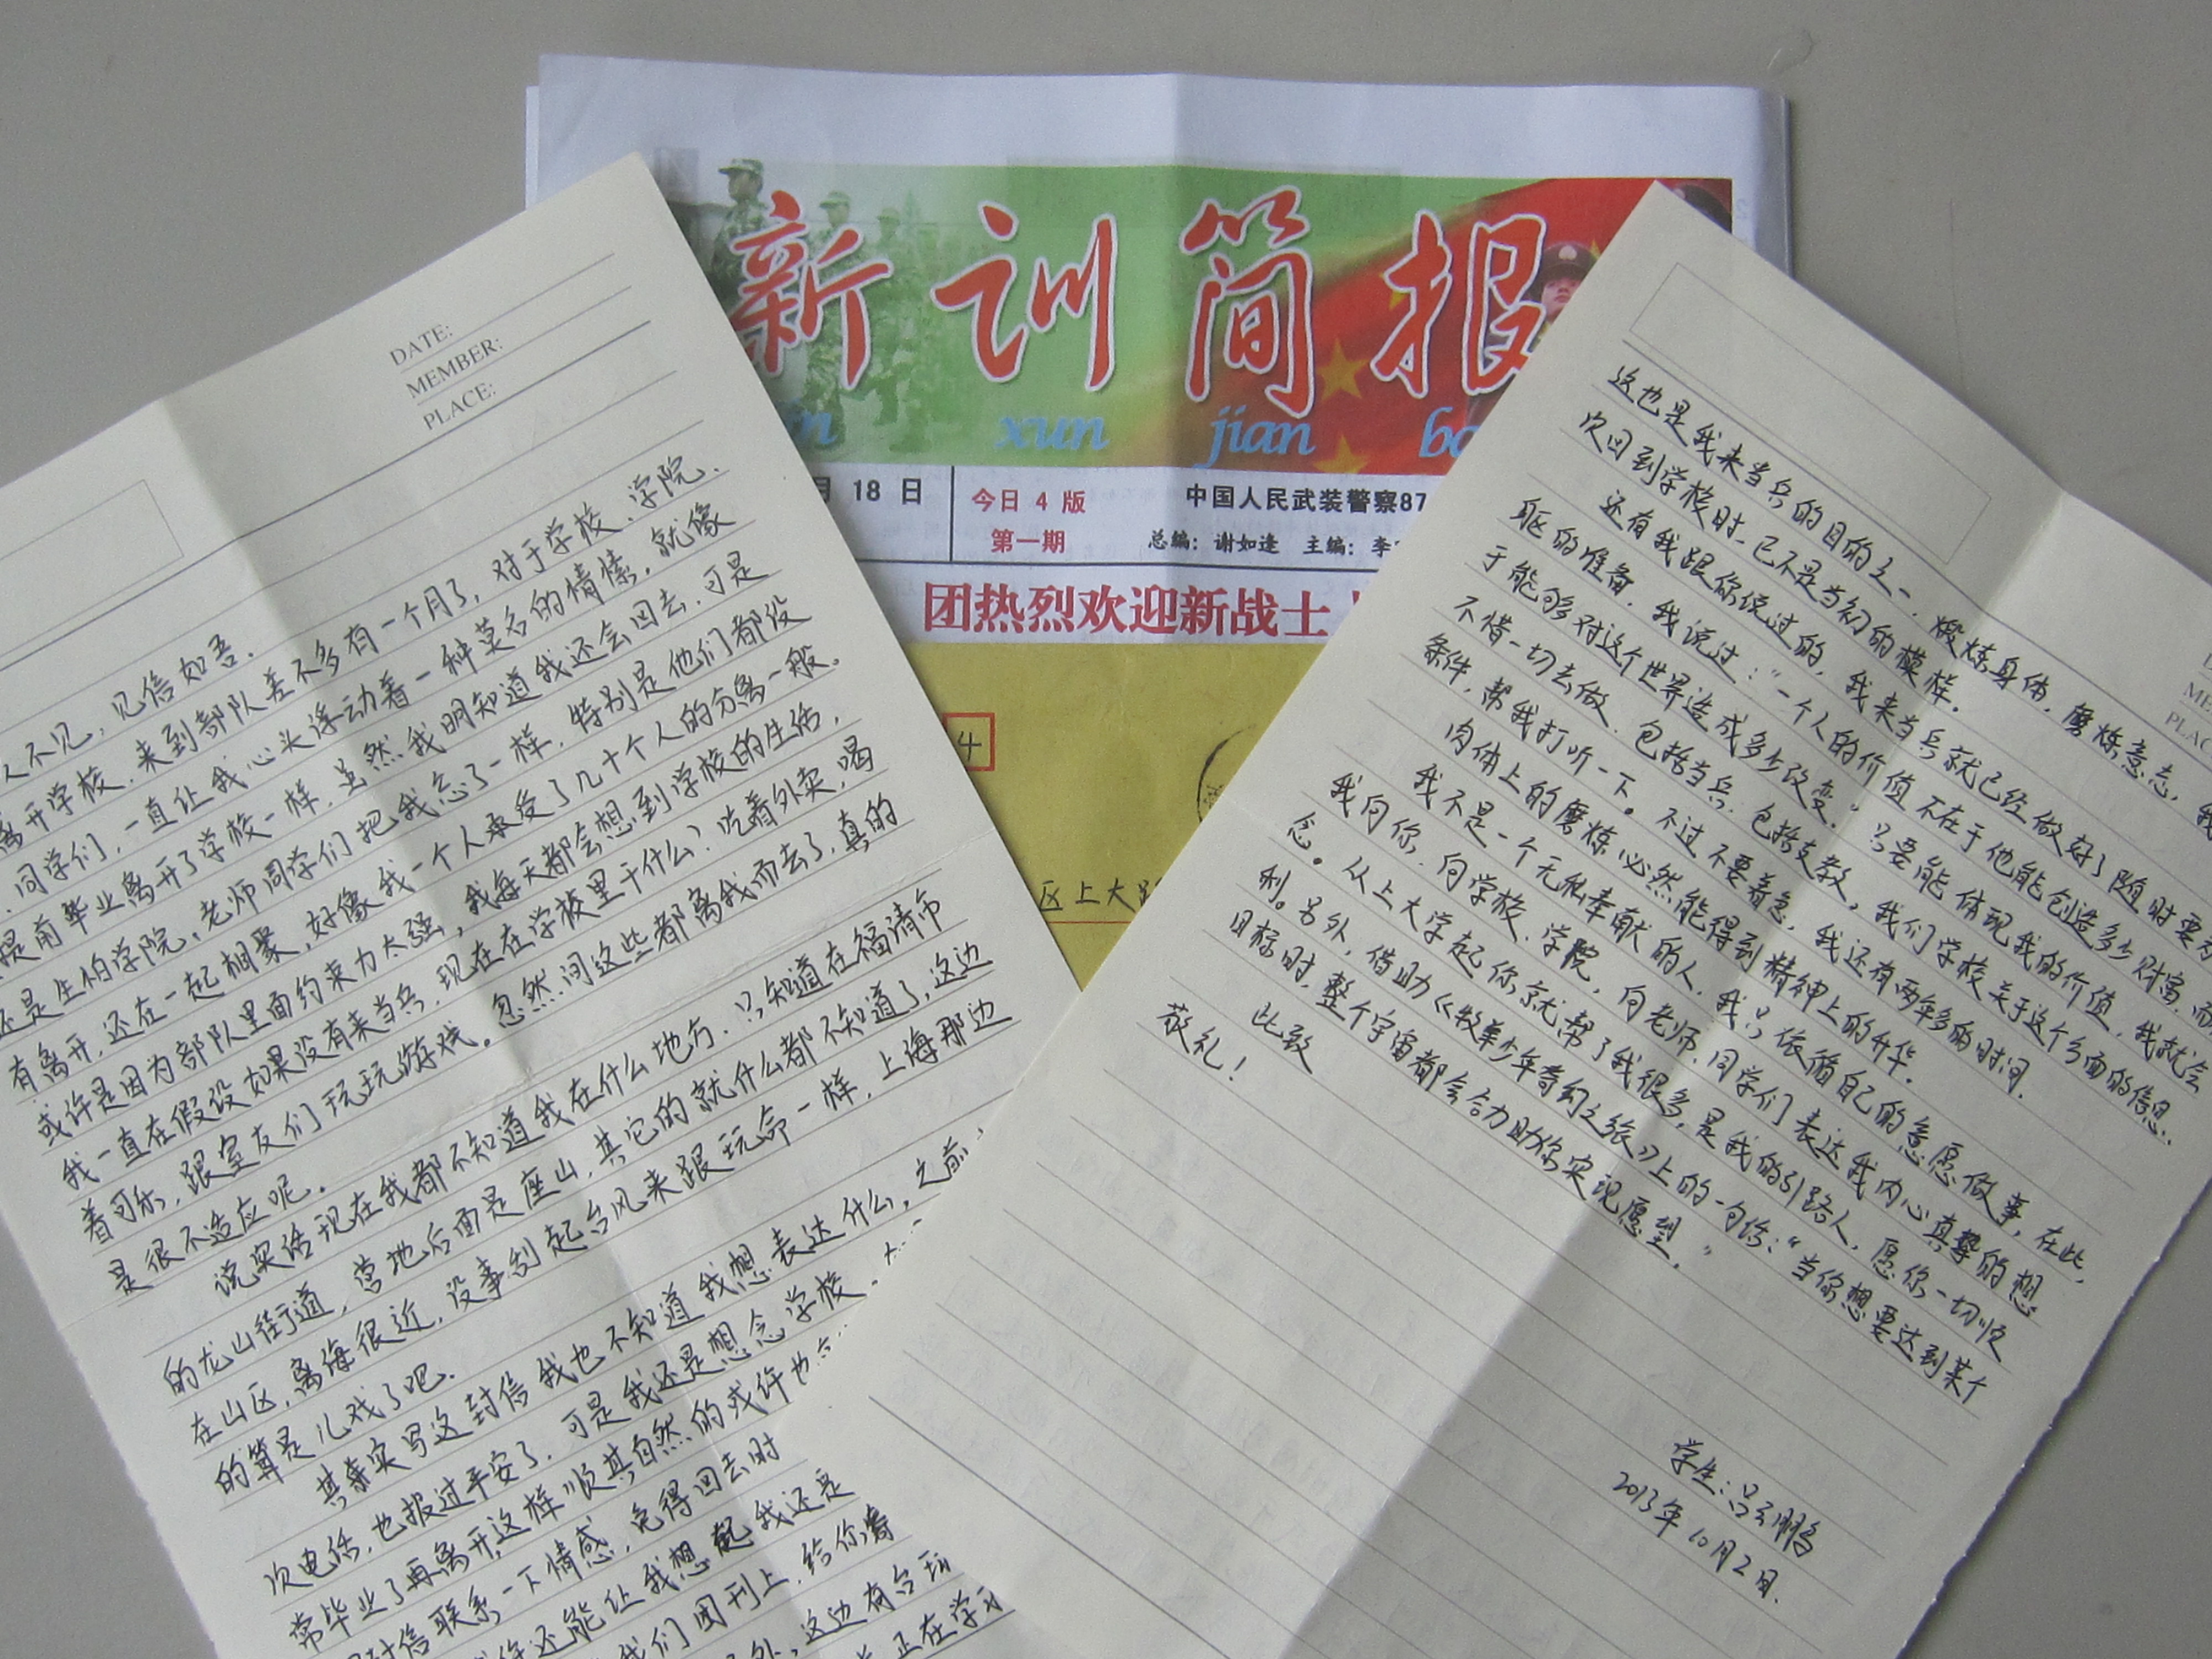 新训简报
xun jian
月 18 日
今日 4 版
第一期
中国人民武装警察87
总编：谢如逢 主编：李
团热烈欢迎新战士
4
区上大路
DATE:
MEMBER:
PLACE:
人不见，见信如吾.
离开学校，来到部队差不多有一个月了，对于学校、学院、
同学们，一直让我心头浮动着一种莫名的情愫，就像
提前毕业离开了学校一样，虽然我明知道我还会回去，可是
还是生怕学院，老师同学们把我忘了一样，特别是他们都没
有离开，还在一起相聚，好像我一个人承受了几十个人的分离一般。
或许是因为部队里面约束力太强，我每天都会想到学校的生活，
我一直在假设如果没有来当兵，现在在学校里干什么？吃着外卖，喝
着可乐，跟室友们玩玩游戏。忽然间这些都离我而去了，真的
是很不适应呢。
说实话现在我都不知道我在什么地方，只知道在福清市
的龙山街道，营地后面是座山，其它的就什么都不知道了，这边
在山区，离海很近，没事刮起台风来跟玩命一样，上海那边
的算是儿戏了吧.
其实写这封信我也不知道我想表达什么，之前
次电话，也报过平安了，可是我还是想念学校、
常毕业了再离开，这样顺其自然的或许也
封信联系一下情感，免得回去时
许还能让我想起我还是
我们团刊上，给你寄
外，这边有台球
正在学
这也是我来当兵的目的之一，煅炼身体，磨炼意志，我
次回到学校时，已不是当初的模样.
还有我跟你说过的，我来当兵就已经做好了随时要为
躯的准备，我说过：“一个人的价值不在于他能创造多少财富，而
于能够对这个世界造成多少改变.”只要能体现我的价值，我就会
不惜一切去做，包括当兵，包括支教，我们学校关于这个方面的信息..
条件，帮我打听一下。不过不要着急，我还有两年多的时间.
肉体上的磨炼必然能得到精神上的升华.
我不是一个无私奉献的人，我只依循自己的意愿做事，在此，
我向你、向学校、学院，向老师、同学们表达我内心真挚的想
念。从上大学起你就帮了我很多，是我的引路人，愿你一切顺
利。另外，借助《牧羊少年奇幻之旅》上的一句话：“当你想要达到某个
目标时，整个宇宙都会合力助你实现愿望.”
此致
敬礼！
学生：吕云鹏
2013年10月2日.